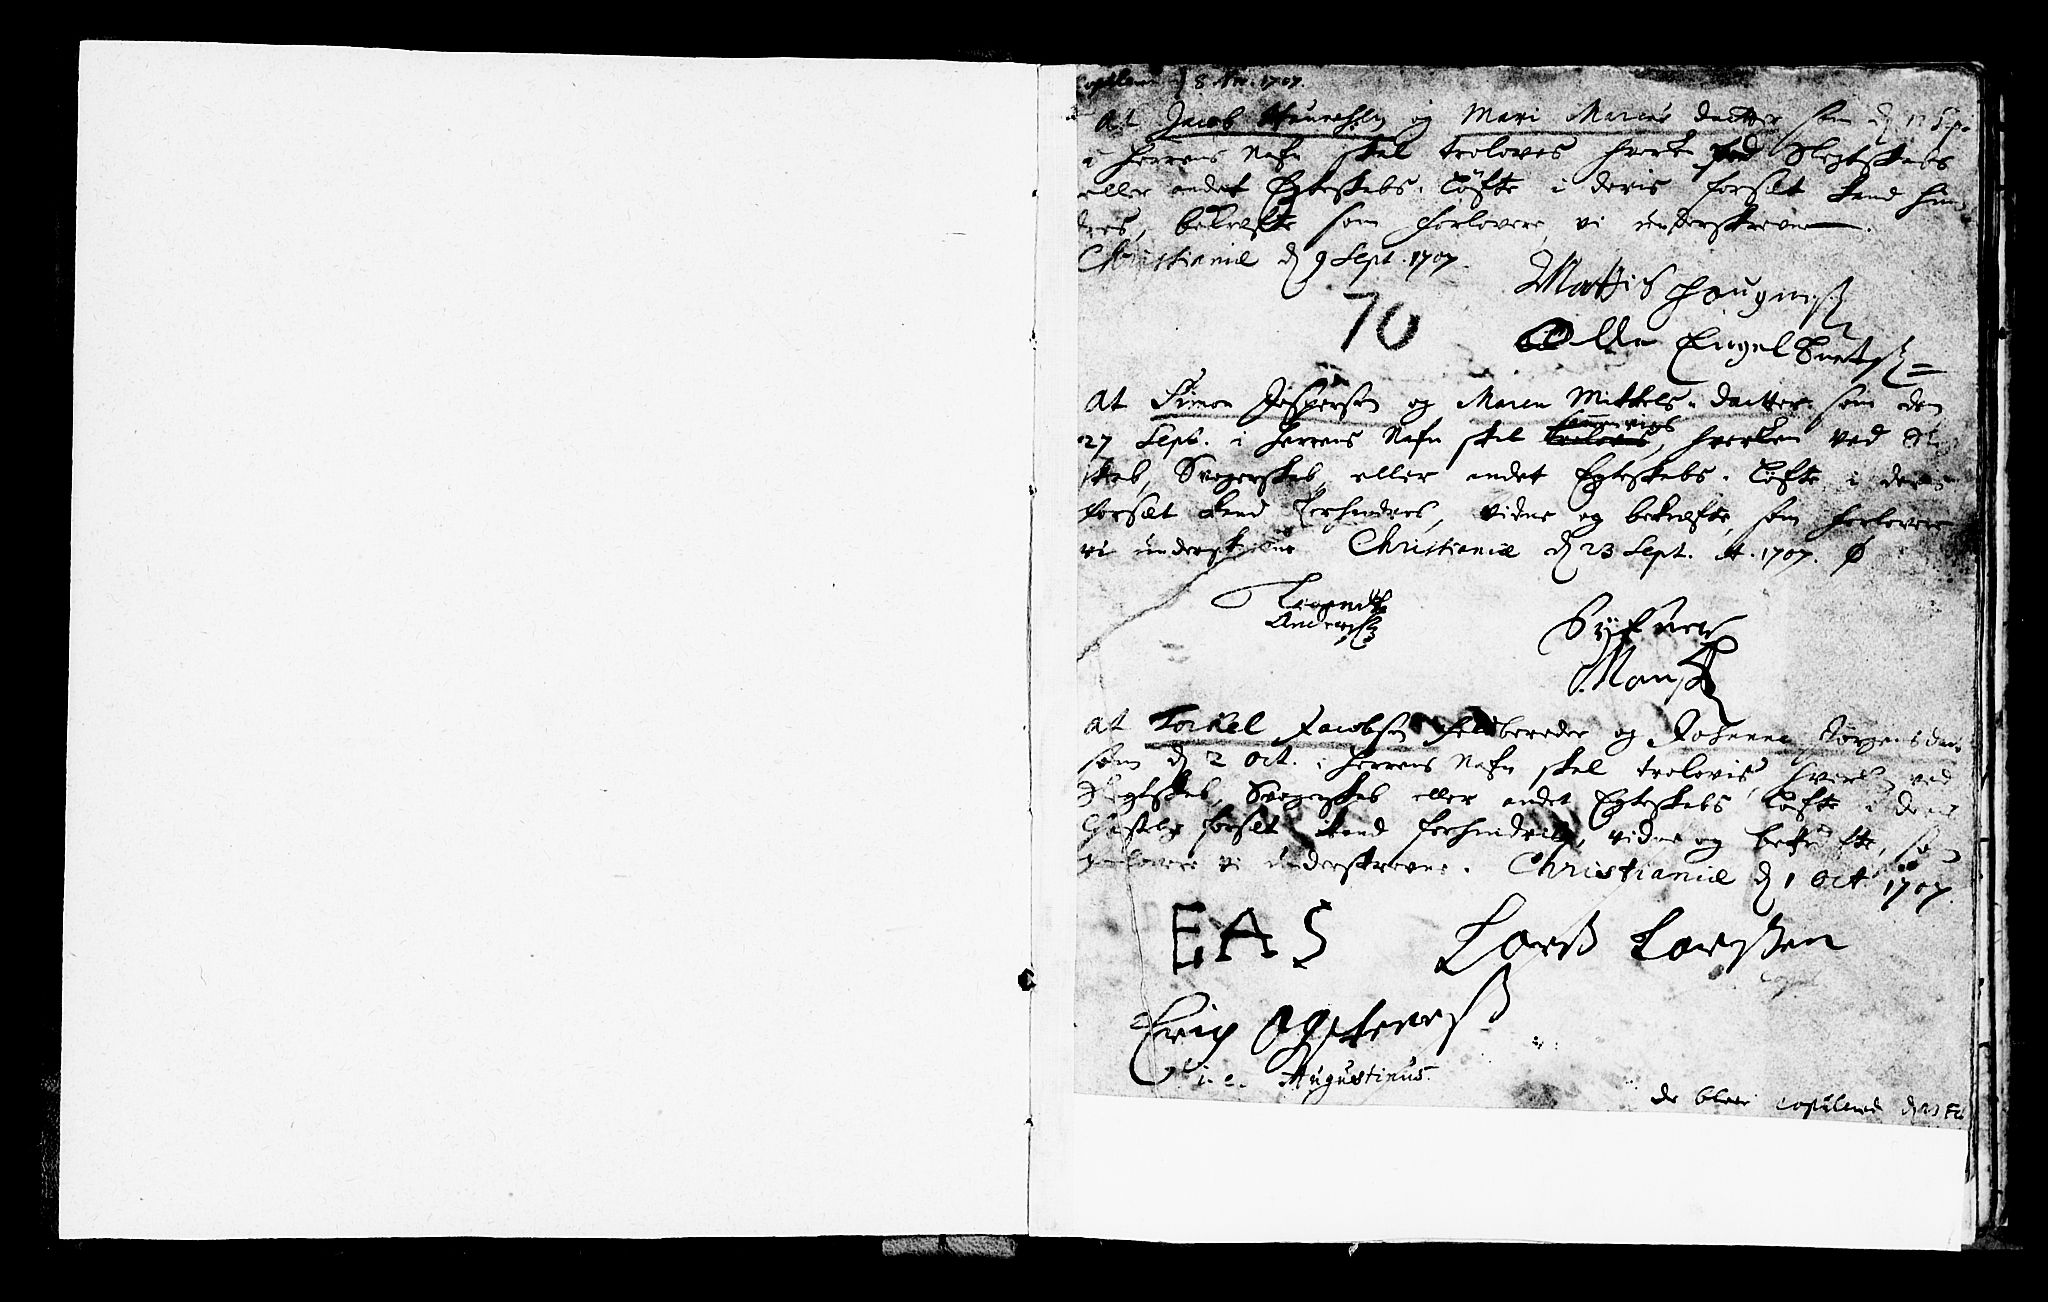 8 Nov. 1707.
At Jacob og Mari Marcus daatter som d 12 Sep.
i Herrens Nafn skal troloves hverken ved Slegtskabs
eller andet Egteskabs-Løfte i deris forsæt kand hin-
dres, bekrefte som forlovere, vi underskrevne.
Christianiæ d 9 Sept. 1707.
Mattis
70
Olle Engelbretß
At Simon Jespersen og Maren Mikkels-daatter som den
27 Sept. i Herrens Nafn skal trolovis, hverken ved
skab, Svogerskab, eller andet Egteskabs-Løfte, i deris
forsæt kand forhindres, vidne og bekræfte, som forlovere
vi underskrevne Christianiæ d 23 Sept. A. 1707.
Anderß
Monß
At Torkel Jacobsen og Johanna Jørgensdaat
som d 2 Oct. i Herrens Nafn skal trolovis, hverken ved
Slegtskab, Svogerskab eller andet Egteskabs Løfte i deris
forsæt kand forhindris, vidne og bekrefte, som
forlovere vi underskrevne. Christianiæ d 1 Oct. 1707.
EAS Larß Larßen
Erich
i. e. Augustinus.
de blev copulered d